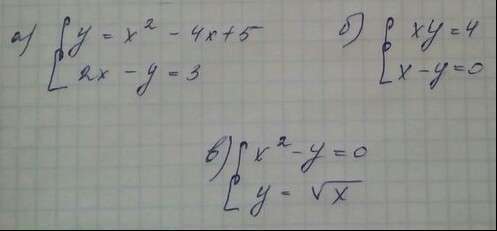 а) { y = x² - 4x + 5
2x - y = 3
б) { xy = 4
x - y = 0
в) { x² - y = 0
y = √x